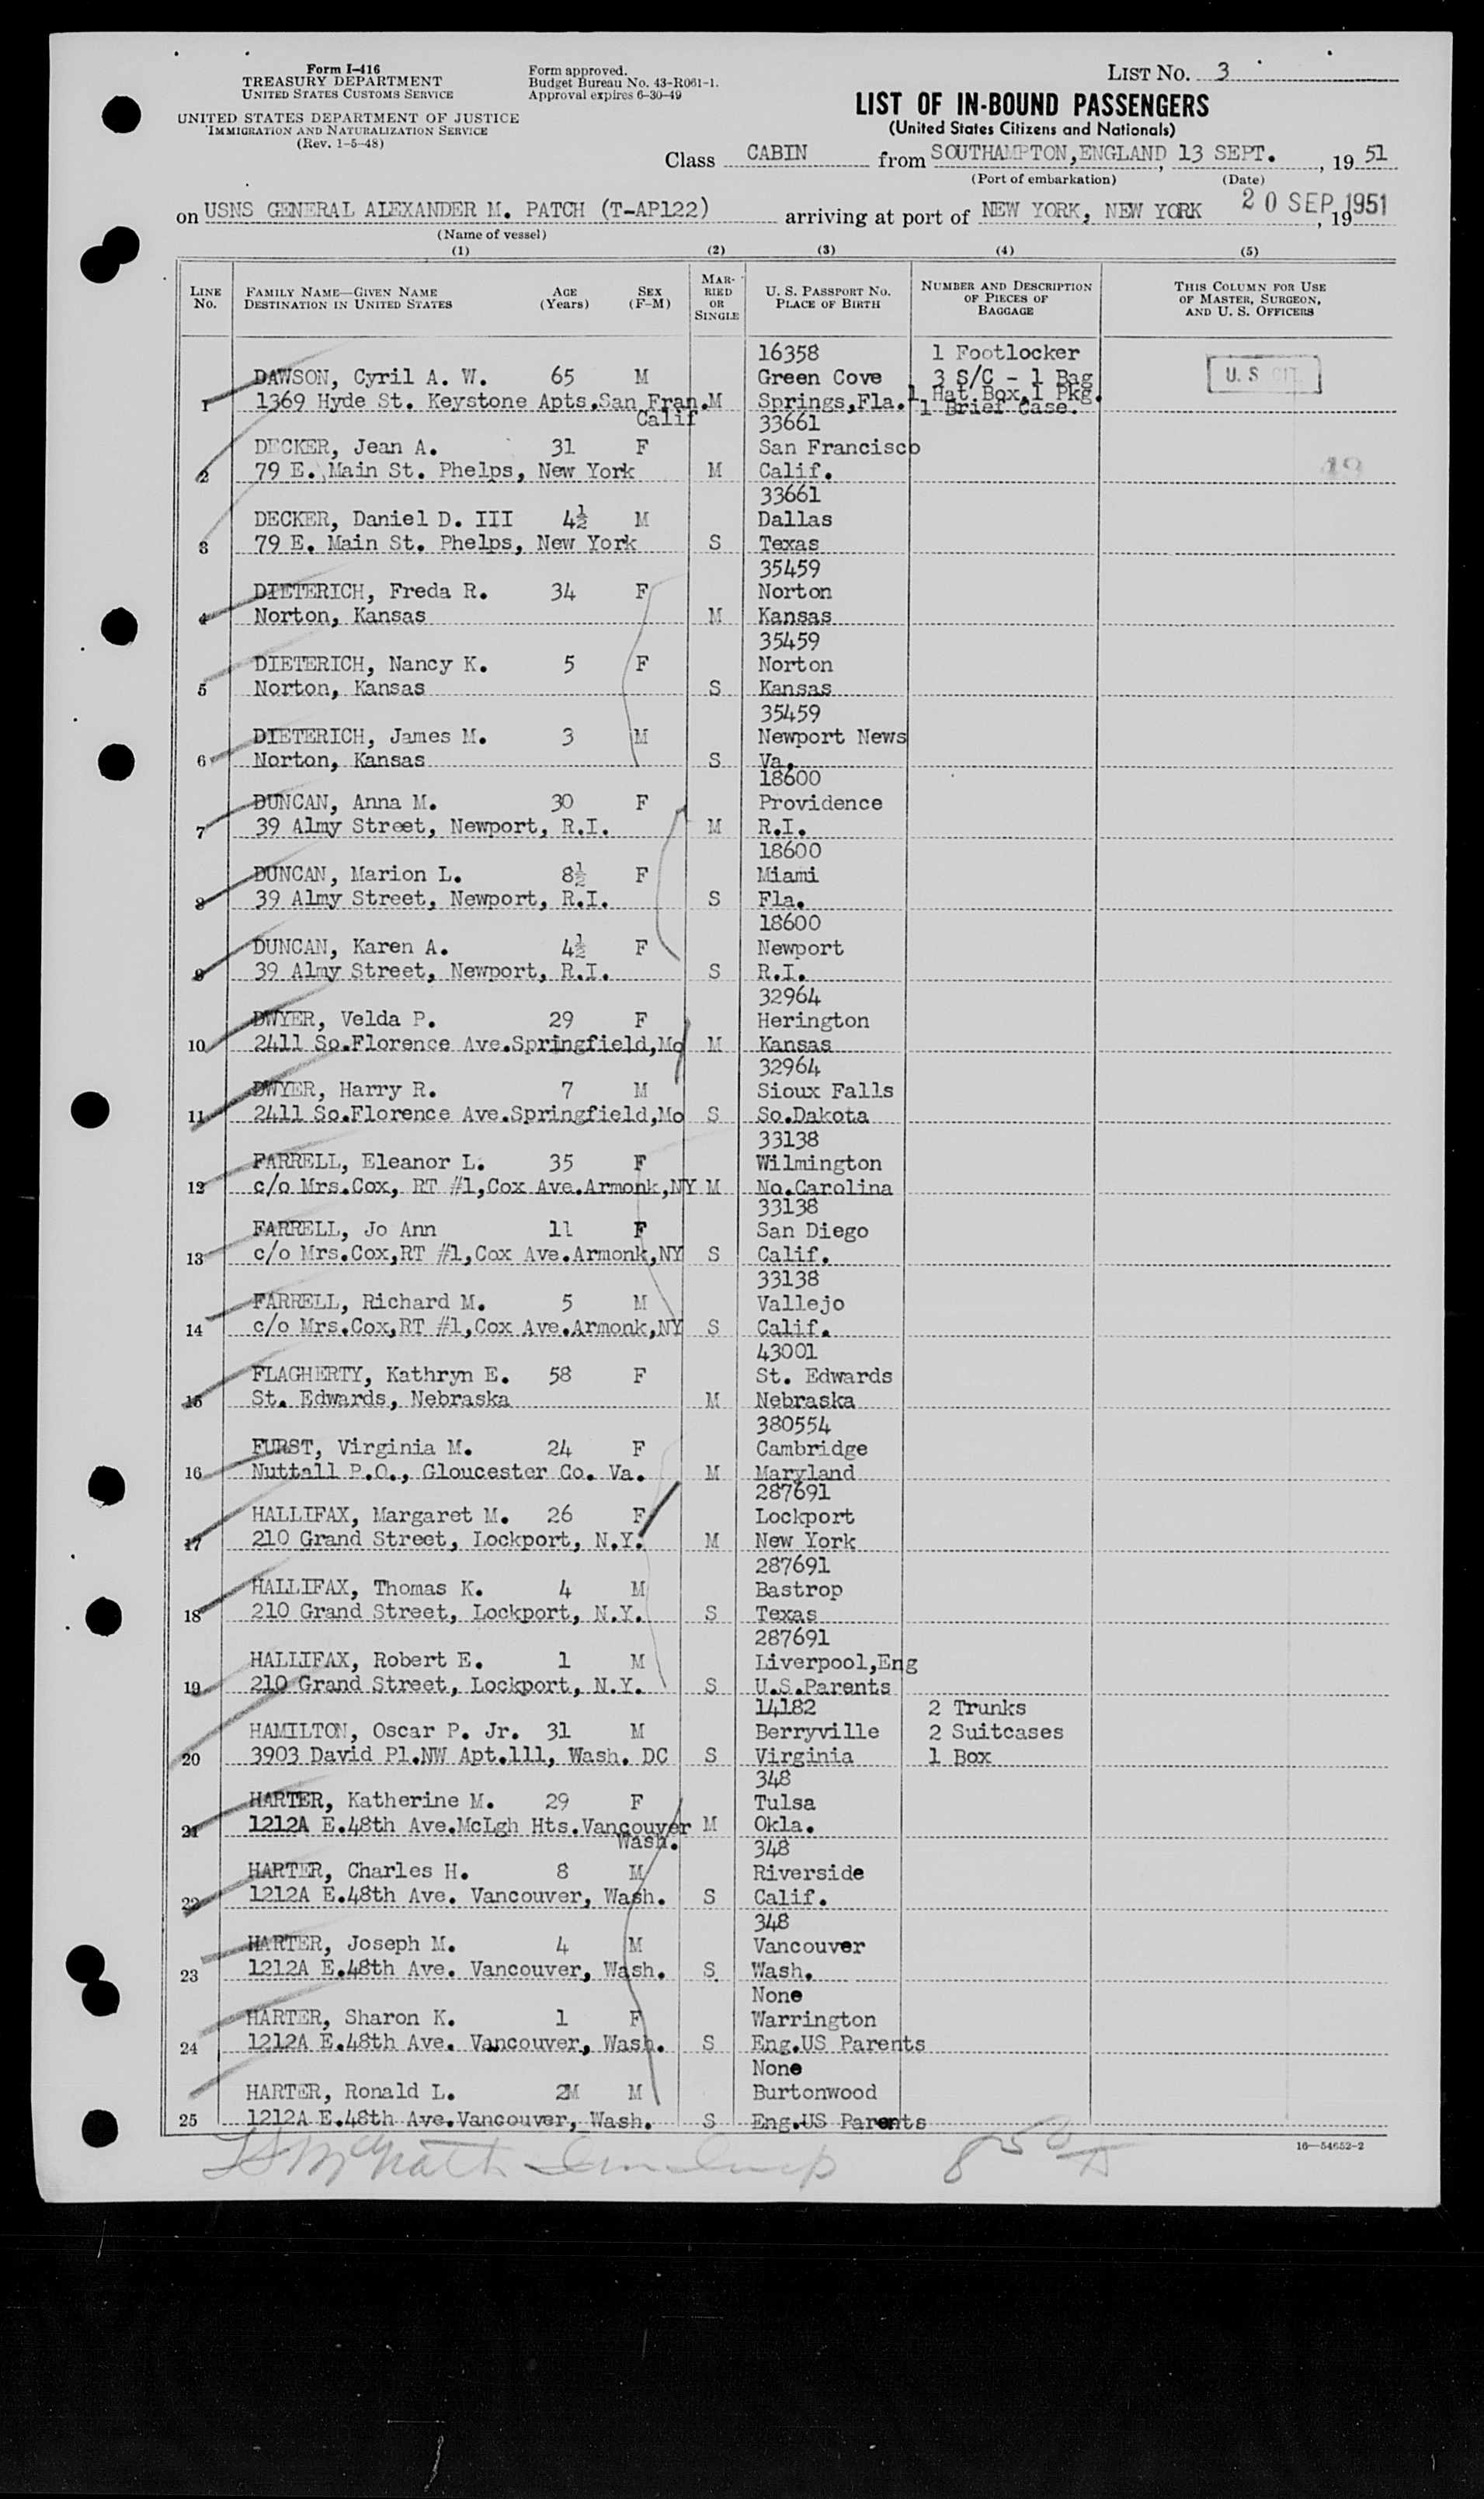 Form I-416
TREASURY DEPARTMENT
UNITED STATES CUSTOMS SERVICE
UNITED STATES DEPARTMENT OF JUSTICE
IMMIGRATION AND NATURALIZATION SERVICE
(Rev. 1-5-48)
Form approved.
Budget Bureau No. 43-R061-1.
Approval expires 6-30-49
LIST NO. 3
LIST OF IN-BOUND PASSENGERS
(United States Citizens and Nationals)
Class CABIN from SOUTHAMPTON, ENGLAND, 13 SEPT., 19 51
(Port of embarkation) (Date)
on USNS GENERAL ALEXANDER M. PATCH (T-AP122) arriving at port of NEW YORK, NEW YORK 20 SEP 1951, 19
(Name of vessel)
(1) (2) (3) (4) (5)
LINE NO. FAMILY NAME—GIVEN NAME DESTINATION IN UNITED STATES AGE (Years) SEX (F-M) MARRIED OR SINGLE U. S. PASSPORT NO. PLACE OF BIRTH NUMBER AND DESCRIPTION OF PIECES OF BAGGAGE THIS COLUMN FOR USE OF MASTER, SURGEON, AND U. S. OFFICERS
16358 1 Footlocker
DAWSON, Cyril A. W. 65 M Green Cove 3 S/C - 1 Bag U. S CIT
1 1369 Hyde St. Keystone Apts. San Fran. M Springs, Fla. 1 Hat Box, 1 Pkg.
Calif 1 Brief Case.
33661
DECKER, Jean A. 31 F San Francisco
2 79 E. Main St. Phelps, New York M Calif.
33661
DECKER, Daniel D. III 4½ M Dallas
3 79 E. Main St. Phelps, New York S Texas
35459
DIETERICH, Freda R. 34 F Norton
4 Norton, Kansas M Kansas
35459
DIETERICH, Nancy K. 5 F Norton
5 Norton, Kansas S Kansas
35459
DIETERICH, James M. 3 M Newport News
6 Norton, Kansas S Va.
18600
DUNCAN, Anna M. 30 F Providence
7 39 Almy Street, Newport, R.I. M R.I.
18600
DUNCAN, Marion L. 8½ F Miami
8 39 Almy Street, Newport, R.I. S Fla.
18600
DUNCAN, Karen A. 4½ F Newport
9 39 Almy Street, Newport, R.I. S R.I.
32964
DWYER, Velda P. 29 F Herington
10 2411 So.Florence Ave.Springfield,Mo M Kansas
32964
DWYER, Harry R. 7 M Sioux Falls
11 2411 So.Florence Ave.Springfield,Mo S So.Dakota
33138
FARRELL, Eleanor L. 35 F Wilmington
12 c/o Mrs.Cox, RT #1,Cox Ave.Armonk,NY M No.Carolina
33138
FARRELL, Jo Ann 11 F San Diego
13 c/o Mrs.Cox,RT #1,Cox Ave.Armonk,NY S Calif.
33138
FARRELL, Richard M. 5 M Vallejo
14 c/o Mrs.Cox,RT #1,Cox Ave.Armonk,NY S Calif.
43001
FLAGHERTY, Kathryn E. 58 F St. Edwards
15 St. Edwards, Nebraska M Nebraska
380554
FURST, Virginia M. 24 F Cambridge
16 Nuttall P.O., Gloucester Co. Va. M Maryland
287691
HALLIFAX, Margaret M. 26 F Lockport
17 210 Grand Street, Lockport, N.Y. M New York
287691
HALLIFAX, Thomas K. 4 M Bastrop
18 210 Grand Street, Lockport, N.Y. S Texas
287691
HALLIFAX, Robert E. 1 M Liverpool,Eng
19 210 Grand Street, Lockport, N.Y. S U.S.Parents
14182 2 Trunks
HAMILTON, Oscar P. Jr. 31 M Berryville 2 Suitcases
20 3903 David Pl.NW Apt.111, Wash. DC S Virginia 1 Box
348
HARTER, Katherine M. 29 F Tulsa
21 1212A E.48th Ave.McLgh Hts.Vancouver M Okla.
Wash.
348
HARTER, Charles H. 8 M Riverside
22 1212A E.48th Ave. Vancouver, Wash. S Calif.
348
HARTER, Joseph M. 4 M Vancouver
23 1212A E.48th Ave. Vancouver, Wash. S Wash.
None
HARTER, Sharon K. 1 F Warrington
24 1212A E.48th Ave. Vancouver, Wash. S Eng.US Parents
None
HARTER, Ronald L. 2M M Burtonwood
25 1212A E.48th Ave.Vancouver, Wash. S Eng.US Parents
16—54652-2